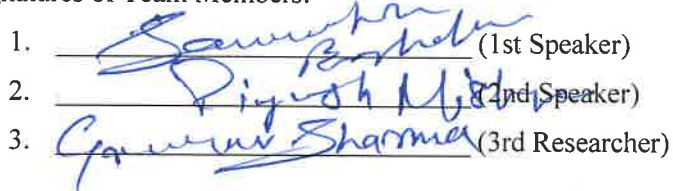 natures of Team Members:
1. (1st Speaker)
2. Piyush Mishra (2nd Speaker)
3. Gaurav Sharma (3rd Researcher)